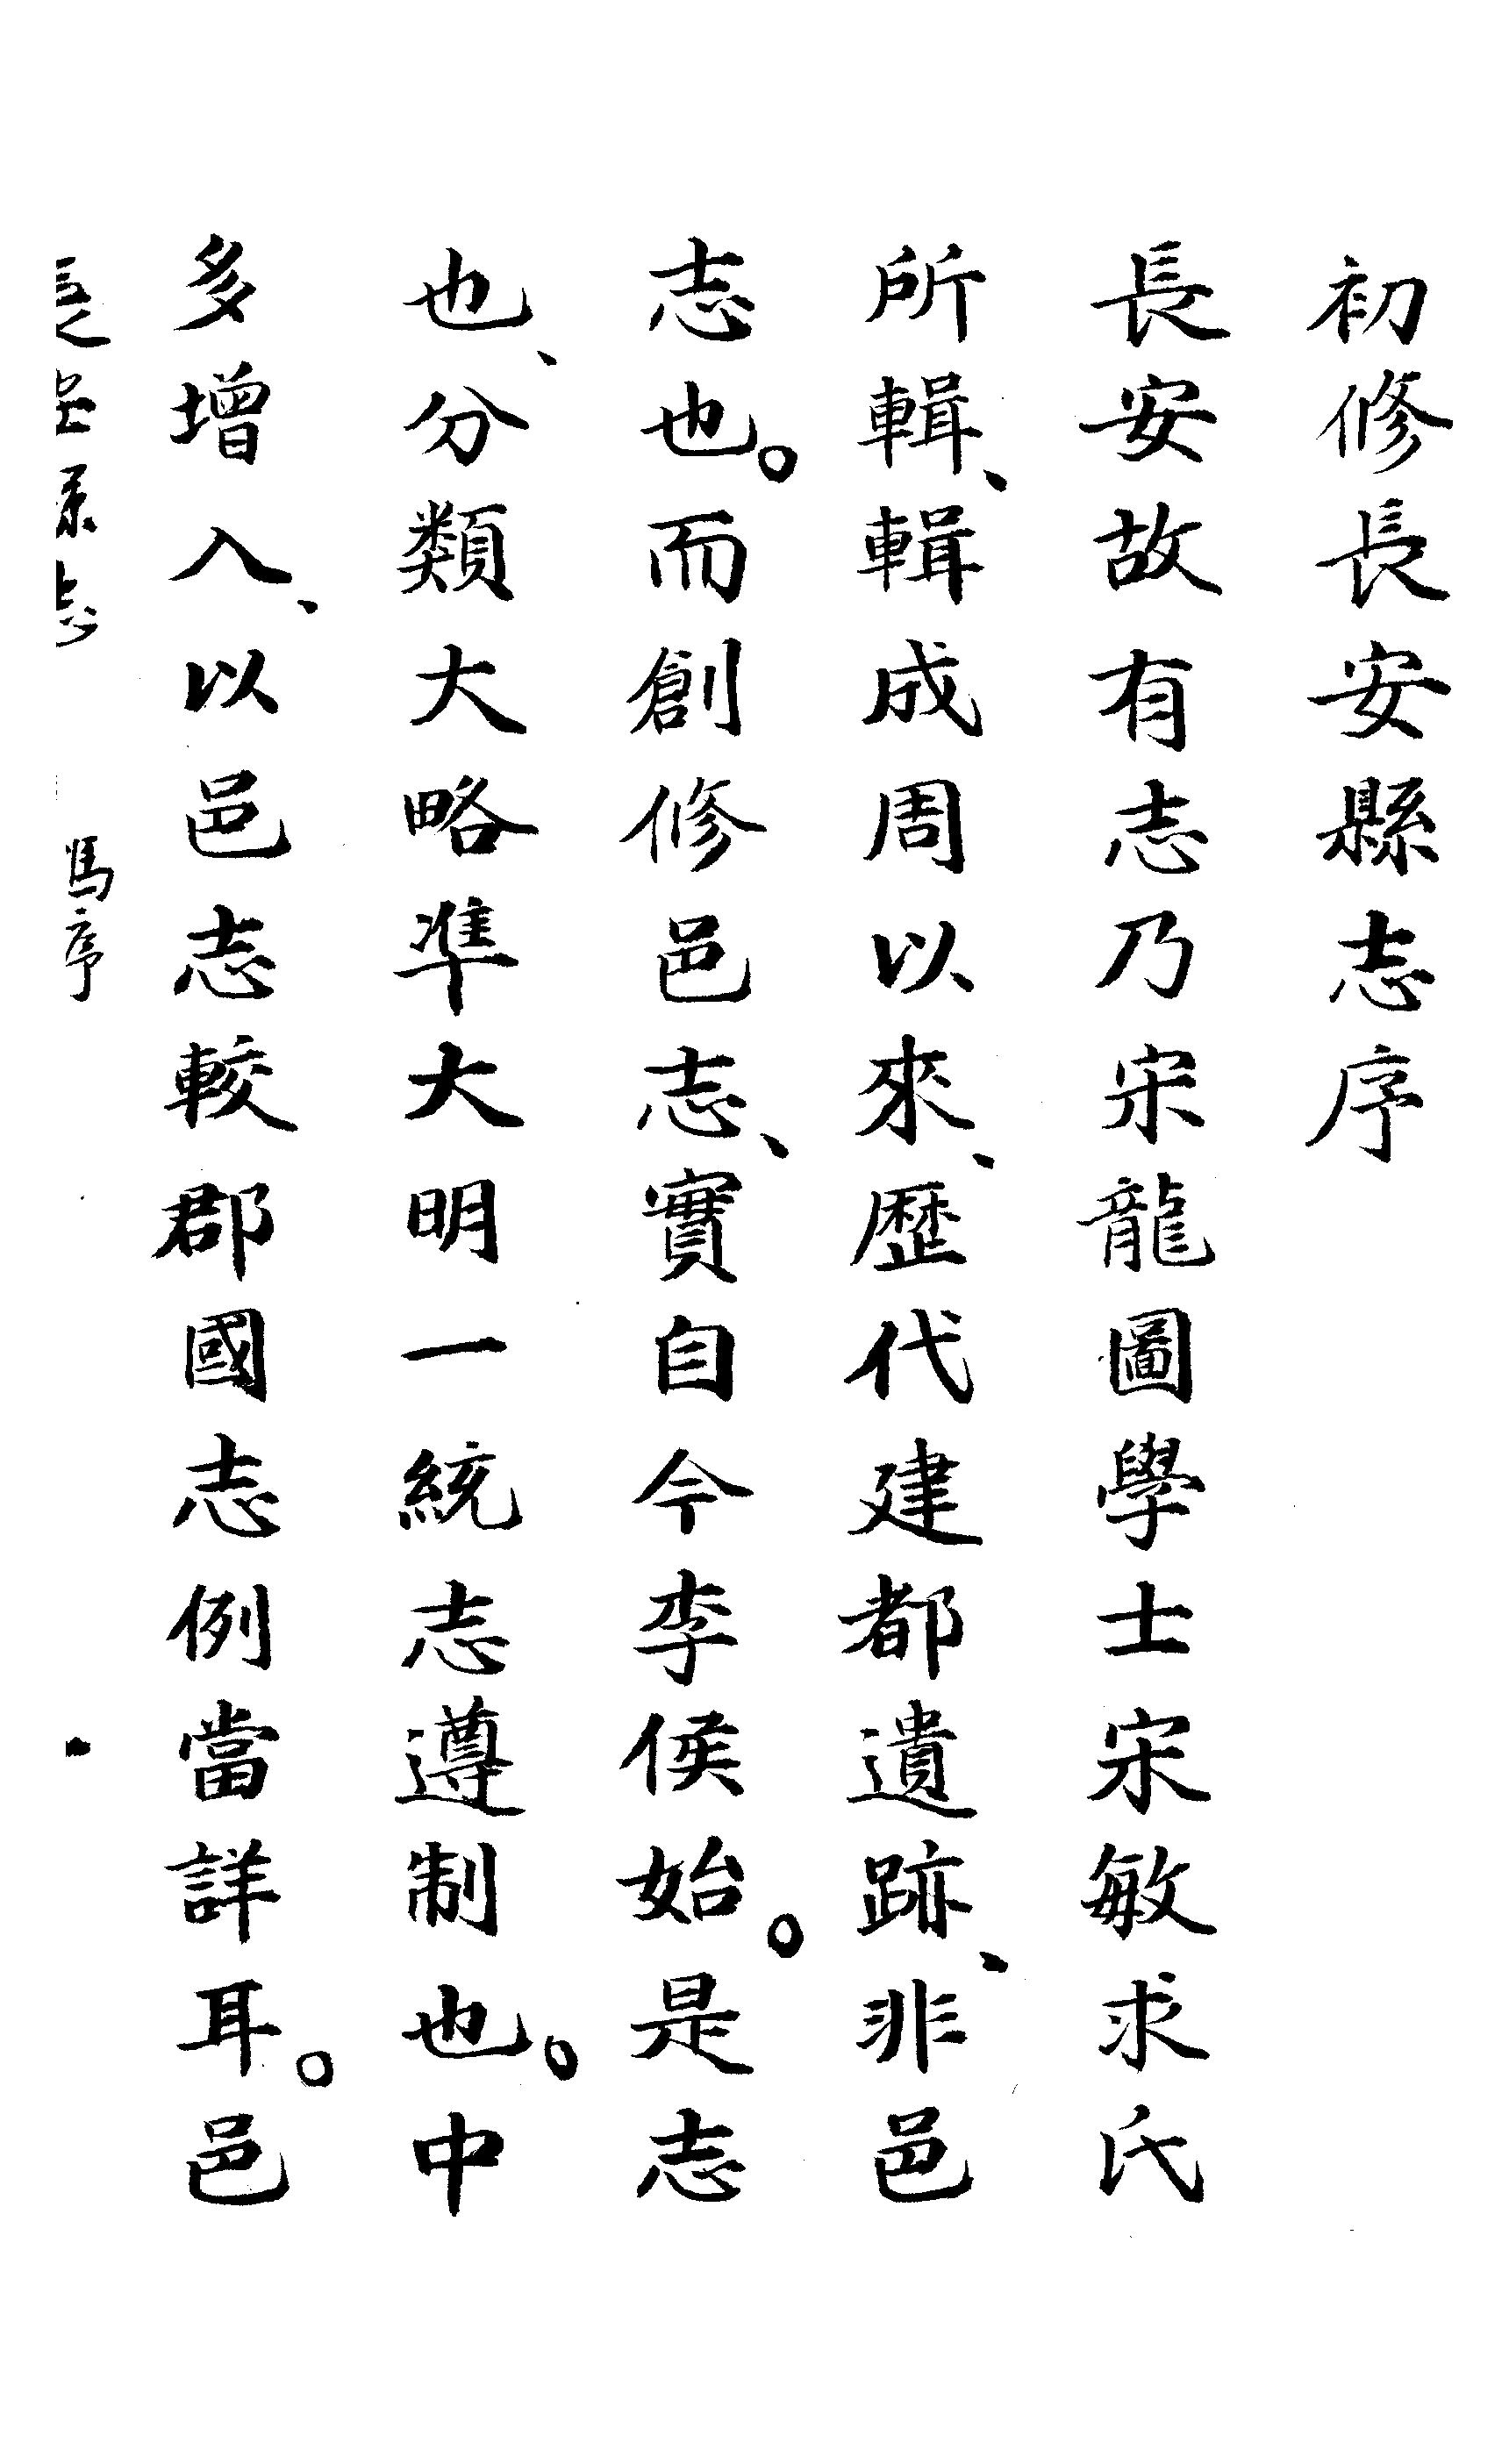 初修長安縣志序
長安故有志乃宋龍圖學士宋敏求氏
所輯、輯成周以來、歷代建都遺跡、非邑
志也。而創修邑志、實自今李侯始。是志
也、分類大略準大明一統志遵制也。中
多增入、以邑志較郡國志例當詳耳。邑
長安縣志 馮序